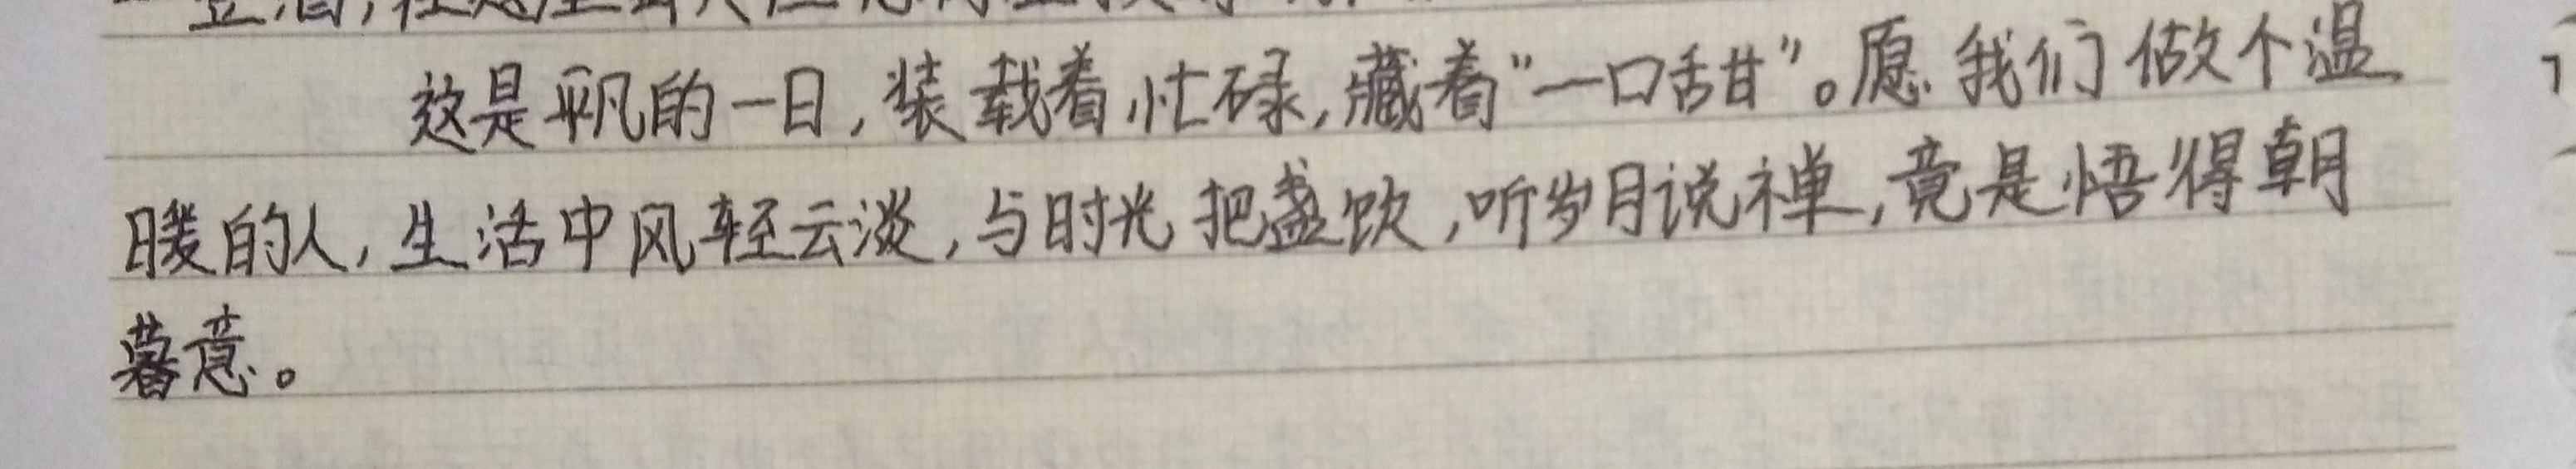 这是平凡的一日,装载着忙碌,藏着“一口甜”。愿我们做个温
暖的人,生活中风轻云淡,与时光把盏饮,听岁月说禅,竟是悟得朝
暮意。